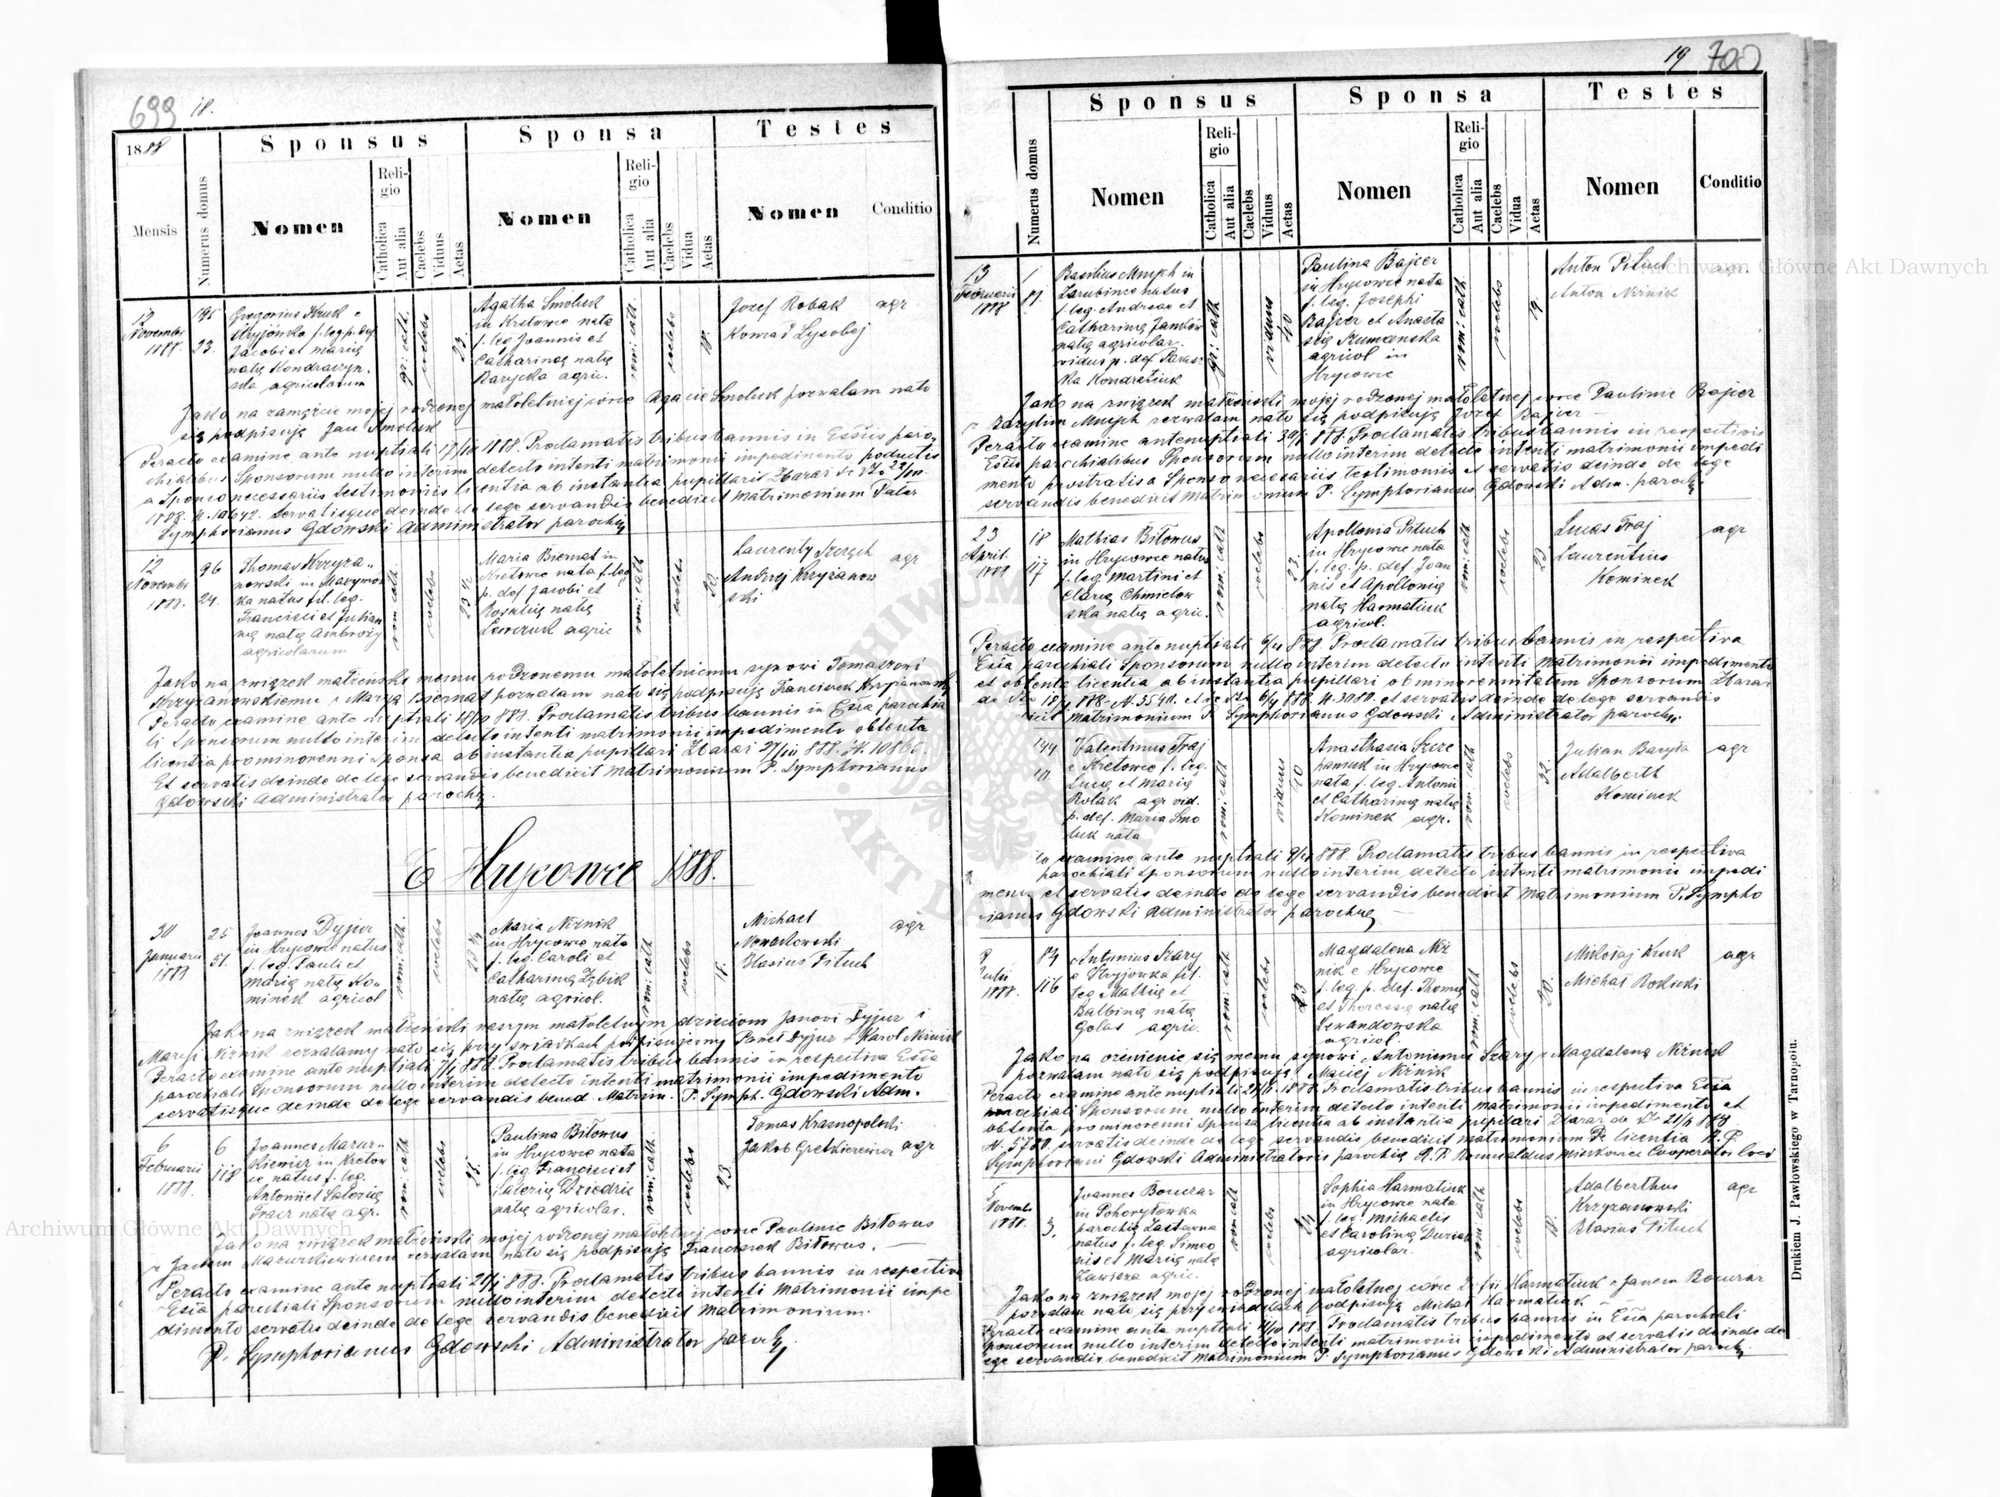 699 18.
1888
Mensis
Numerus domus
Sponsus
Nomen
Religio
Catholica
Aut alia
Caelebs
Viduus
Aetas
Sponsa
Nomen
Religio
Catholica
Aut alia
Caelebs
Vidua
Aetas
Testes
Nomen
Conditio
12
Novembr
1888.
195
23.
Gregorius Kruk e
Kryjówka f. leg. p. def.
Jacobi et Mariæ
natæ
agricolarum
gr: cath.
coelebs
23
Agatha Smoluk
in Kretowce nata
f. leg Joannis et
Catharinæ natæ
Barycka agric.
rom: cath.
coelebs
18.
Jozef Robak agr
Konrad Lysobej
Jako na zamęzcie mojej rodzonej małoletniej córce Agacie Smoluk pozwalam nato
się podpisują Jan Smoluk
Peracto examine ante nuptiali 1888. Proclamatis tribus bannis in Ecclesiis paro-
chialibus Sponsorum nullo interim detecto intenti matrimonii impedimento
a Sponso necessariis testimoniis licentia ab instantia pupillari Zbaraż
1888. N. 10642. servatisque deinde de lege servandis benedicit Matrimonium Pater
Symphorianus Gdowski Administrator parochiæ
12
Novembr
1888.
96
24.
Thomas Krzyża-
nowski in
natus fil. leg.
Francisci et Julian-
næ natæ Ambroży
agricolarum
rom: cath.
coelebs
23 ½
Maria Biernat in
Kretowce nata f. leg
p. def Jacobi et
Rosaliæ natæ
Lewczuk agric
rom: cath
coelebs
20.
Laurenty agr
Andrzej Krzyżanow
ski
Jako na związek małżeński memu rodzonemu małoletniemu synowi Tomaszowi
Krzyżanowskiemu z Maryą Biernat pozwalam nato się podpisują Franciszek Krzyżanowski
Peracto examine ante nuptiali 1888. Proclamatis tribus bannis in Ecclesia parochia
li Sponsorum nullo interim detecto intenti matrimonii impedimento obtenta
licentia pro minorenni Sponsa ab instantia pupillari Zbaraż 888. N. 10865.
Et servatis deinde de lege servandis benedicit Matrimonium P. Symphorianus
Gdowski Administrator parochiæ.
E Hrycowce 1888.
30
Januarii
1888
25
51.
Joannes Dyjur
in Hrycowce natus
f. leg. Pauli et
Mariæ natæ Ko-
minek agricol
rom: cath.
coelebs
23 ¾
Maria Niżnik
in Hrycowce nata
f. leg. Caroli et
Catharinæ Zębik
natæ agricol.
rom: cath
coelebs
18.
Michael agr
Nowakowski
Blasius Pituch
Jako na związek małżeński naszym małoletnym dzieciom Janowi Dyjur i
Maryi Niżnik zezwalamy nato się przy świadkach podpisujemy Paweł Dyjur + Karol Niżnik
Peracto examine ante nuptiali 888. Proclamatis tribus bannis in respectiva Ecclesia
parochiali Sponsorum nullo interim detecto intenti matrimonii impedimento
servatisque deinde de lege servandis bened. Matrim. P. Symph. Gdowski Adm.
6
Februarii
1888.
6
118
Joannes Mazur-
kiewicz in Kretow
ce natus f. leg.
Antonii et Saloniæ
natæ agr.
rom: cath
coelebs
28.
Paulina Bitowus
in Hrycowce nata
f. leg Francisci et
Valeriæ Dziedzic
natæ agricolar.
rom: cath.
coelebs
23
Tomas Krasnopolski
Jakób Gretkiewicz agr
Jako na związek małżeński mojej rodzonej małoletniej córce Paulinie Bitowus
z Janem Mazurkiewiczem zezwalam nato się podpisują Franciszek Bitowus.
Peracto examine ante nuptiali 888. Proclamatis tribus bannis in respectiva
Ecclesia parochiali Sponsorum nullo interim detecto intenti Matrimonii impe
dimento servatis deinde de lege servandis benedicit Matrimonium.
P. Symphorianus Gdowski Administrator parochiæ
19 700
Numerus domus
Sponsus
Nomen
Religio
Catholica
Aut alia
Caelebs
Viduus
Aetas
Sponsa
Nomen
Religio
Catholica
Aut alia
Caelebs
Vidua
Aetas
Testes
Nomen
Conditio
13
Februarii
1888
1
81.
Basilius Mnych in
Zarubince natus
f. leg. Andreae et
Catharinæ
natæ agricolar.
vidus p. def. Paras-
ka Kondratiuk
gr: cath
viduus
40
Paulina Bajer
in Hrycowce nata
f. leg. Josephi
Bajer et Anasta
siæ Rumanska
agricol in
Hrycowce
rom: cath
coelebs
19.
Anton Pituch agr
Anton Niżnik
Jako na związek małżenski mojej rodzonej małoletnej córce Paulinie Bajer
z Bazylim Mnych zezwalam nato się podpisują Jozef Bajer
Peracto examine antenuptiali 888. Proclamatis tribus bannis in respectivis
Ecclesiis parochialibus Sponsorum nullo interim detecto intenti matrimonii impedi
mento prostratis a Sponso necessariis testimoniis et servatis deinde de lege
servandis benedicit Matrimonium P. Symphorianus Gdowski Adm. parochiæ
23
April
1888
18
117
Mathias Bitowus
in Hrycowce natus
f. leg. Martini et
Claræ Chmielow
ska natæ agric.
rom: cath
coelebs
23.
Apollonia Pituch
in Hrycowce nata
f. leg. p. def Joan
nis et Apolloniæ
natæ Harmatiuk
agricol.
rom: cath
coelebs
23
Lucas Fraj agr
Laurentius
Kominek
Peracto examine ante nuptiali 888. Proclamatis tribus bannis in respectiva
Ecclesia parochiali Sponsorum nullo interim detecto intenti Matrimonii impedimento
et obtenta licentia ab instantia pupillari ob minorennitatem Sponsorum Zbaraż
888. N. 5540. 888. N. 3080. et servatis deinde de lege servandis
Matrimonium P. Symphorianus Gdowski Administrator parochiæ.
144
10
Valentinus Fraj
e Kretowce f. leg.
Lucæ et Mariæ
Robak agr vid.
p. def. Maria Smo
luk nata
rom: cath
viduus
40
Anasthasia Szcze
paniuk in Hrycowce
nata f. leg Antonii
et Catharinæ natæ
Kominek agr.
rom: cath
coelebs
32.
Julian Baryła agr
Adalberth
Kominek
examine ante nuptiali 888. Proclamatis tribus bannis in respectiva
parochiali Sponsorum nullo interim detecto intenti matrimonii impedi
et servatis deinde de lege servandis benedicit Matrimonium P. Sympho
rianus Gdowski Administrator parochiæ
8
Julii
1888.
84
116
Antonius Szary
e Kryjowka fil.
leg Mathiæ et
Balbinæ natæ
Golas agric.
rom: cath
coelebs
23
Magdalena Niż
nik e Hrycowce
f. leg. p. def. Thomæ
et Theressiæ natæ
Lewandowska
agricol.
rom: cath
coelebs
20.
Mikołaj Kruk agr
Michał Rosicki
Jako na ożenienie się memu synowi Antoniemu Szary z Magdaleną Niżnik
pozwalam nato się podpisują Maciej Niżnik
Peracto examine ante nuptiali 1888. Proclamatis tribus bannis in respectiva Ecclesia
parochiali Sponsorum nullo interim detecto intenti matrimonii impedimento et
obtenta pro minorenni Sponsa licentia ab instantia pupillari Zbaraż 888
N. 5780. servatis deinde de lege servandis benedicit matrimonium De licentia R. P.
Symphoriani Gdowski Administratoris parochiæ R. P. Romualdus Cooperator loci
5
Novembr
1888.
3.
Joannes Bouczar
in Pohorylowka
parochia
natus f. leg. Simeo
nis et Mariæ natæ
Zawisza agric.
rom: cath
coelebs
24
Sophia Harmatiuk
in Hrycowce nata
f. leg. Michaelis
et Carolinæ
agricolar.
rom: cath
coelebs
18.
Adalberthus agr
Krzyżanowski
Blasius Pituch
Jako na związek mojej rodzonej małoletnej córce Zofii Harmatiuk z Janem Bouczar
pozwalam nato się przy świadkach podpisują Michał Harmatiuk
Peracto examine ante nuptiali 888 Proclamatis tribus bannis in Ecclesia parochiali
Sponsorum nullo interim detecto intenti matrimonii impedimento et servatis deinde de
lege servandis benedicit Matrimonium P. Symphorianus Gdowski Administrator parochiæ
Drukiem J. Pawłowskiego w Tarnopolu.
Archiwum Główne Akt Dawnych
Archiwum Główne Akt Dawnych